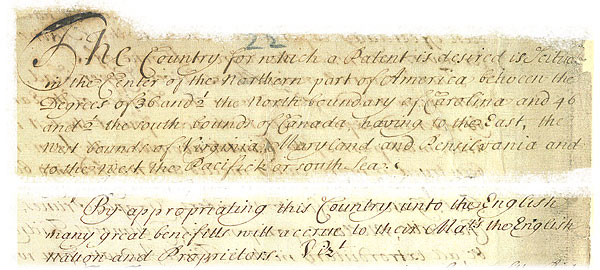 22
The Country for which a Patent is desired is Scitua
in the Center of the Northern part of America between the
Degrees of 36 and ½ the North boundary of Carolina and 46
and ½ the south bounds of Canada, having to the East, the
west bounds of Virginia, Maryland and Pensilvania and
to the west the Pacifick or south Sea.
By appropriating this Country unto the English
many great benefitts will accrue to their Maᵗˢ the English
Nation and Proprietors. Vizᵗ